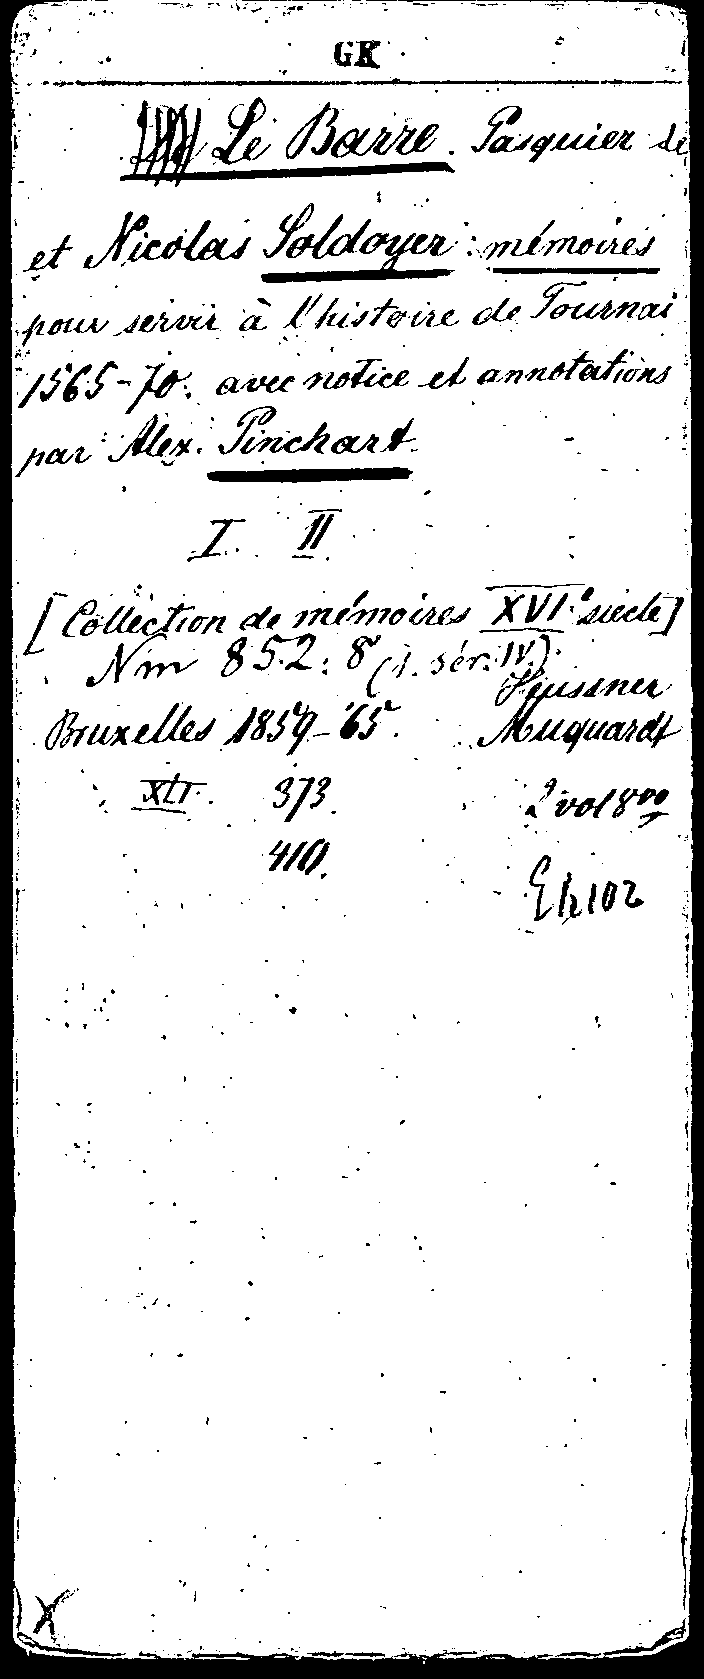 GK
Le Barre. Pasquier de
et Nicolas Soldoyer: mémoires
pour servir à l'histoire de Tournai
1565-70. avec notice et annotations
par Alex. Pinchart.
I. II
[Collection de mémoires XVIe siècle]
Nm 852:8 (1. sér. IV).
Heussner
Bruxelles 1859-'65. Muquardt
XLII. 373. 2 vol 8vo
410.
102
X